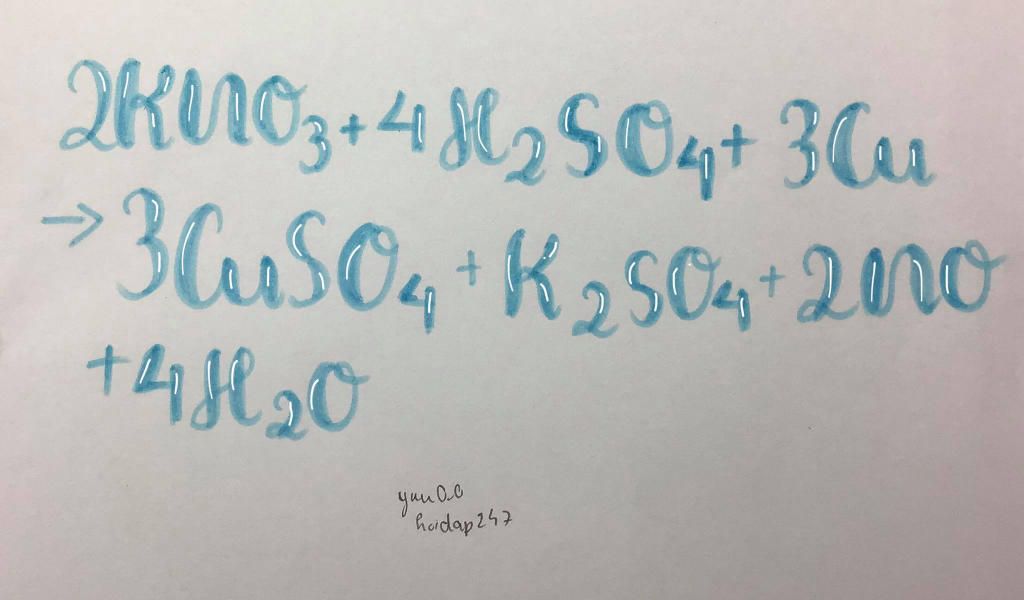 2KNO₃ + 4H₂SO₄ + 3Cu
→ 3CuSO₄ + K₂SO₄ + 2NO
+ 4H₂O
yuu0.0
hoidap247